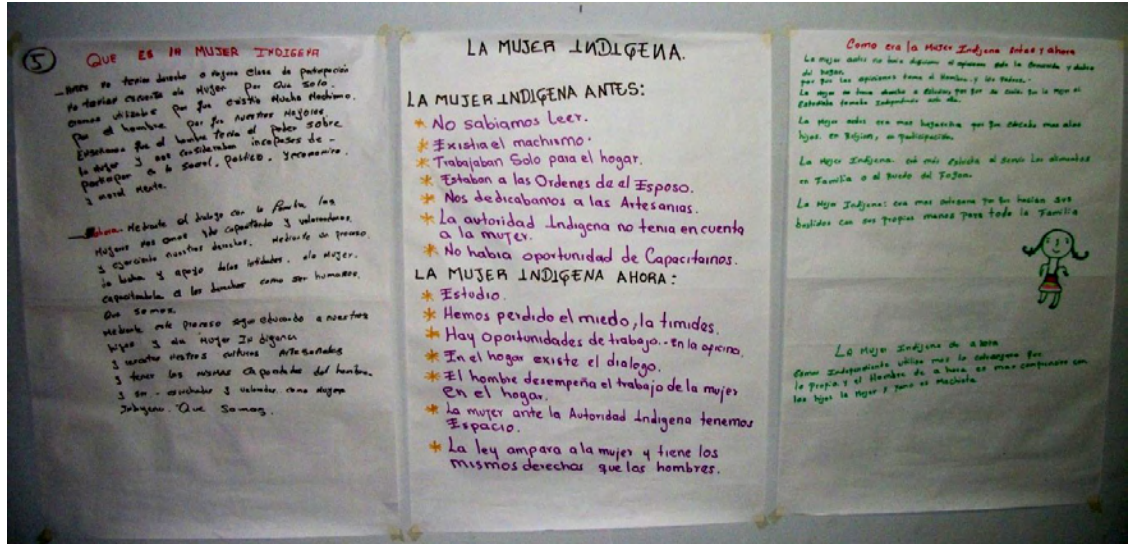 5
QUE ES LA MUJER INDIGENA
Antes no tenian derecho a Clase de participación
No tenian encuenta ala Mujer Por Que Solo
eramos utilizadas Por que existio Mucho Machismo.
por el hombre Por que nuestros Mayores
Enseñaron que el hombre Tenia el poder sobre
la Mujer y nos consideraban incapases de -
participar a lo social, politico, y economico.
y moral Mente.
Ahora. Mediante el dialogo con la familia las
Mujeres nos emos ido capacitando y valorandonos.
y ejerciendo nuestros derechos. Mediante un proceso.
la lucha y apoyo delas intidades. ala Mujer.
capacitandola a los derechos como ser humanos.
Que somos.
Mediante este proceso sigo educando a nuestros
hijos y ala Mujer Indigena
y nestros culturas Artesanales
y tener las mismas Capacidades del hombre.
y ser - escuchadas y valoradas como Mujeres
Indigena. Que Somos.
LA MUJER INDIGENA.
LA MUJER INDIGENA ANTES:
* No sabiamos Leer.
* Existia el machismo.
* Trabajaban Solo para el hogar.
* Estaban a las Ordenes de el Esposo.
* Nos dedicabamos a las Artesanias.
* La autoridad Indigena no tenia en cuenta
a la mujer.
* No habia oportunidad de Capacitarnos.
LA MUJER INDIGENA AHORA:
* Estudio.
* Hemos perdido el miedo, la timides.
* Hay oportunidades de trabajo.. En la oficina.
* In el hogar existe el dialogo.
* El hombre desempeña el trabajo de la mujer
En el hogar.
* La mujer ante la Autoridad Indigena tenemos
Espacio.
* La ley ampara a la mujer y tiene los
mismos derechos que los hombres.
Como era la Mujer Indigena antes y ahora
La mujer antes no hacia opiniones solo la y dentro
del hogar.
por que las opiniones toma el Hombre y los Padres.
La Mujer no tenia derecho a Estudiar por que se decia que la mujer al
Estudiar tomaba Independencia
La Mujer antes era mas por que educaba mas alos
hijos. en Religion, participación.
La Mujer Indigena. era más al Servir Los alimentos
en Familia o al Ruedo del Fogon.
La Mujer Indigena: era mas artesana por que hacian sus
bestidos con sus propias manos para toda la Familia
La Mujer Indigena de ahora
Como Independiente utiliza mas lo extrangero que
lo propio y el Hombre de a hora es mas comparte con
los hijos la mujer y poco es Machista.